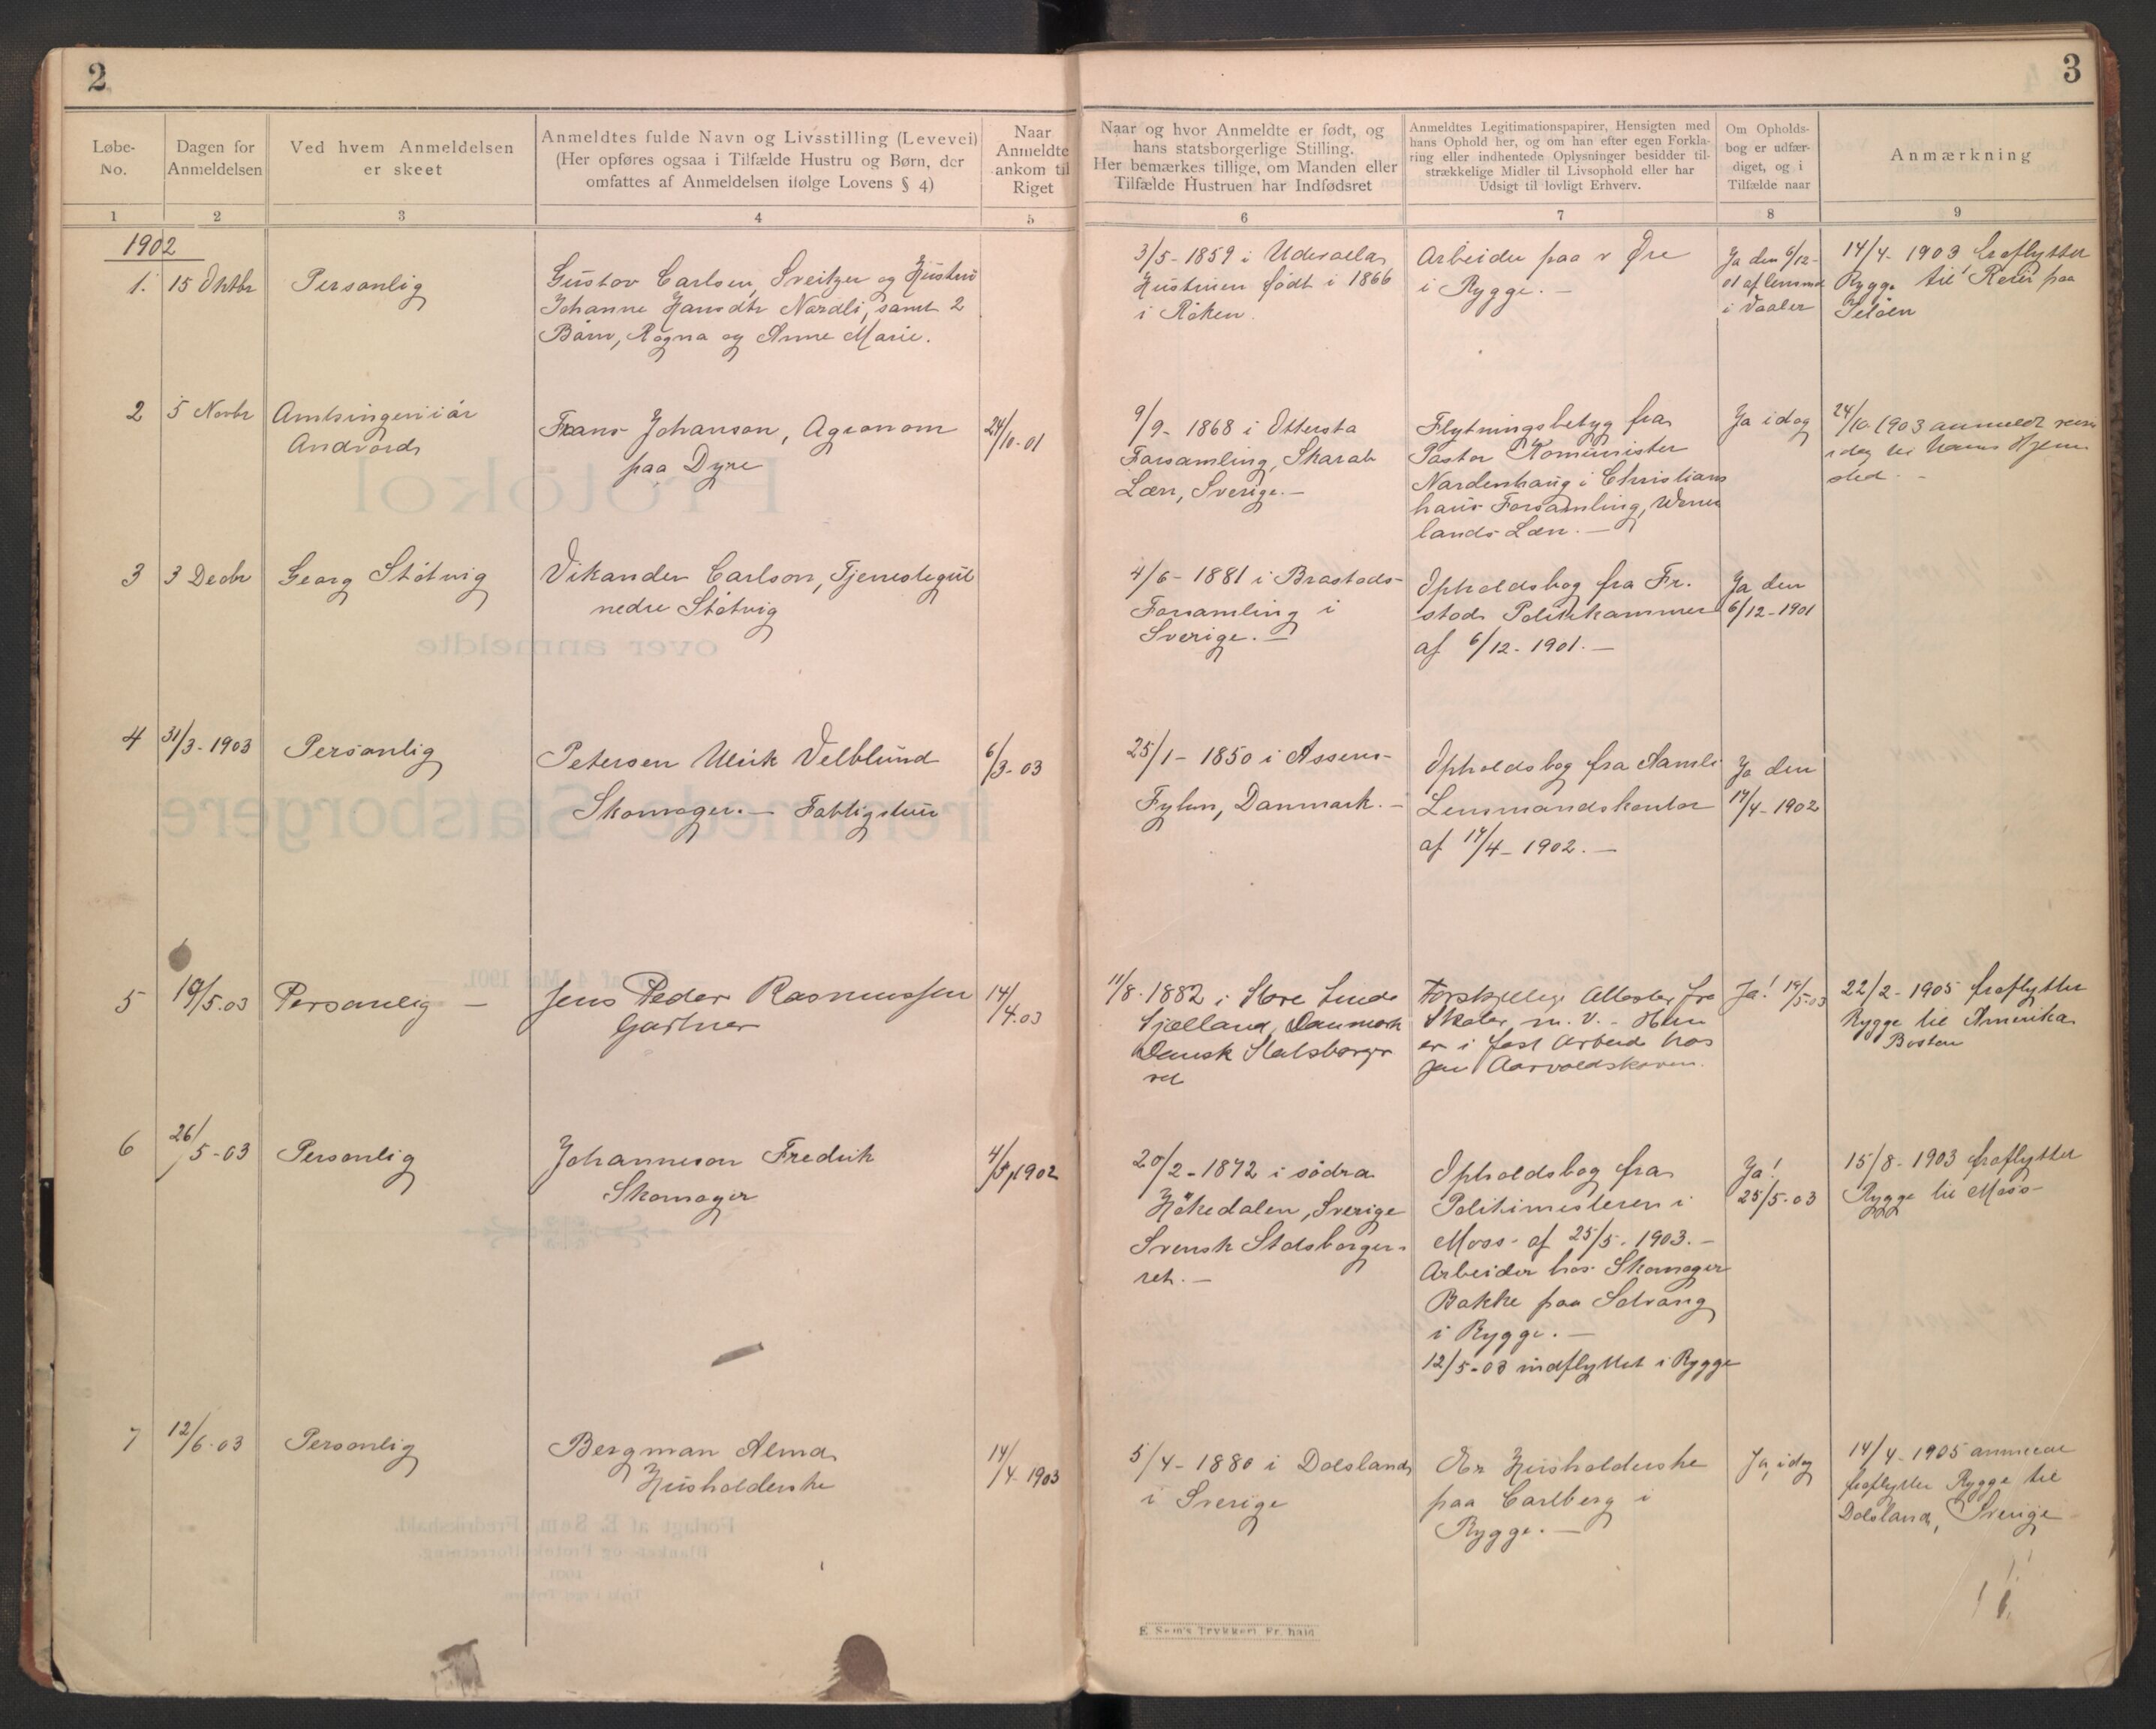 2
Løbe-
No.
Dagen for
Anmeldelsen
Ved hvem Anmeldelsen
er skeet
Anmeldtes fulde Navn og Livsstilling (Levevei)
(Her opføres ogsaa i Tilfælde Hustru og Børn, der
omfattes af Anmeldelsen ifølge Lovens § 4)
Naar
Anmeldte
ankom til
Riget
1
2
3
4
5
1902
1. 15 Oktbr Personlig
Gustav Carlsen, Sveitzer og Hustru
Johanne Hansdtr Nordli, samt 2
Børn, Ragna og Anne Marie.
2 5 Novbr Amtsingeniör
Andvord
Frans Johanson, Agronom
paa Dyre
24/10-01
3 3 Decbr Georg Stötvig
Vikander Carlson, Tjenestegut
nedre Stötvig
4 31/3-1903 Personlig
Petersen Ulrik Velblund
Skomager. — Fattiglem
6/3-03
5 19/5.03 Personlig —
Jens Peder Rasmussen
Gartner
14/4.03
6 26/5-03 Personlig
Johanneson Fredrik
Skomager
1902
7 12/6.03 Personlig
Bergman Alma
Husholderske
14/4-1903
3
Naar og hvor Anmeldte er født, og
hans statsborgerlige Stilling.
Her bemærkes tillige, om Manden eller
Tilfælde Hustruen har Indfødsret
Anmeldtes Legitimationspapirer, Hensigten med
hans Ophold her, og om han efter egen Forkla-
ring eller indhentede Oplysninger besidder til-
strækkelige Midler til Livsophold eller har
Udsigt til lovligt Erhverv.
Om Opholds-
bog er udfær-
diget, og i
Tilfælde naar
Anmærkning
6
7
8
9
3/5-1859 i Udevalla
Hustruen födt i 1866
i Röken.
Arbeider paa v Öre
i Rygge. —
Ja den 6/12-
01 af lensmd
i Vaaler
14/4-1903 fraflytter
Rygge til Reier paa
Jelöen
9/9-1868 i Ottersta
Forsamling, Skarab
Læn, Sverige. —
Flytningsbetyg fra
Pastor Kominister
Nordenhaug i Christians
hans Forsamling, Werm
lands Læn. —
Ja idag
24/10 1903 anmeldt reise
idag til hans Hjem
sted. —
4/6-1881 i Brastads-
Forsamling i
Sverige. —
Opholdsbog fra Fr.
stads Politikammer
af 6/12-1901. —
Ja den
6/12-1901
25/1-1850 i Assens-
Fyhn, Danmark. —
Opholdsbog fra Aamli
Lensmandskontor
af 17/4-1902. —
Ja den
17/4-1902
11/8.1882 i Store Linde
Sjælland, Danmark
Dansk Statsborger
ret
Forskjellige Attester fra
Skoler m. v. - Han
er i fast Arbeid hos
Aarvoldskoven.
Ja! 19/5-03
22/2-1905 fraflytter
Rygge til Amerika
Boston
20/2-1872 i södra
Hökedalen, Sverige
Svensk Statsborger-
ret. —
Opholdsbog fra
Politimesteren i
Moss af 25/5-1903. —
Arbeider hos Skomager
Bakke paa Solvang
i Rygge. —
12/5-03 indflyttet i Rygge
Ja!
25/5-03
15/8-1903 fraflytter
Rygge til Moss-
5/4-1880 i Dalsland
i Sverige
Er Husholderske
paa Carlberg i
Rygge. —
Ja, idag
14/4-1905 anmeldt
fraflytter Rygge til
Dalsland, Sverige
E. Sem's Trykkeri, Fr.hald